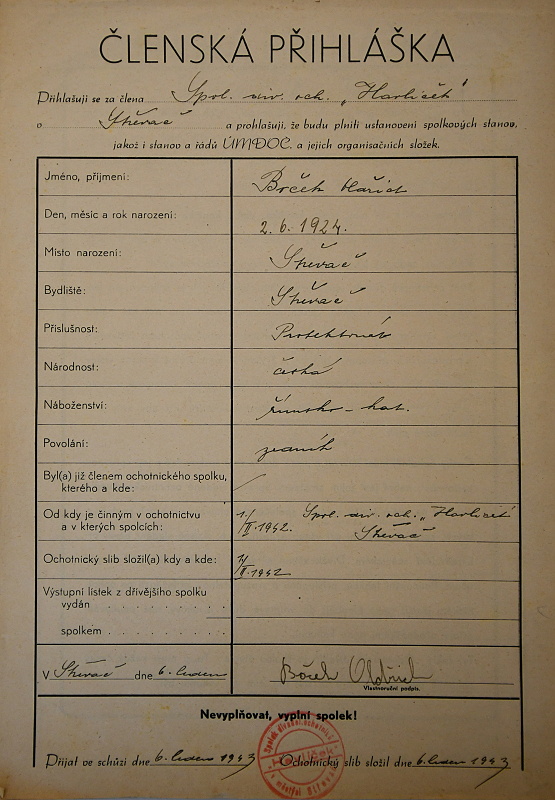 ČLENSKÁ PŘIHLÁŠKA
Přihlašuji se za člena Spol. div. och. „Havlíček"
v Střevač a prohlašuji, že budu plniti ustanovení spolkových stanov,
jakož i stanov a řádů ÚMDOC. a jejich organisačních složek.
Jméno, příjmení:
Den, měsíc a rok narození: 2. 6. 1924.
Místo narození: Střevač
Bydliště: Střevač
Příslušnost: Protektorát
Národnost: česká
Náboženství: římsko-kat.
Povolání:
Byl(a) již členem ochotnického spolku,
kterého a kde: /
Od kdy je činným v ochotnictvu 1./II. 1942. Spol. div. och. „Havlíček"
a v kterých spolcích: Střevač
Ochotnický slib složil(a) kdy a kde: II. 1942
Výstupní lístek z dřívějšího spolku
vydán . . . . . . . . .
spolkem . . . . . . . .
V Střevač dne 6. leden Oldřich
Vlastnoruční podpis.
Nevyplňovat, vyplní spolek!
Přijat ve schůzi dne 6. leden 1943 Ochotnický slib složil dne 6. leden 1943